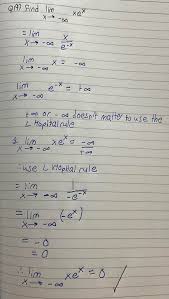 Q(19) Find lim x→-∞ xeˣ
= lim x→-∞ x/e⁻ˣ
lim x→-∞ x = -∞
lim x→-∞ e⁻ˣ = +∞
+∞ or -∞ doesn't matter to use the
L Hopital rule
lim x→-∞ xeˣ = -∞/+∞
∴ use L Hopital rule
= lim x→-∞ 1/-e⁻ˣ
= lim x→-∞ (-eˣ)
= -0
= 0
∴ lim x→-∞ xeˣ = 0 ✓